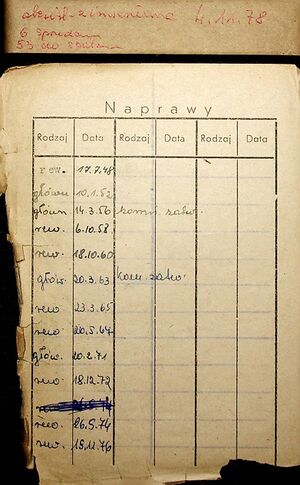 4.11.78
6
53 do
Naprawy
Rodzaj Data Rodzaj Data Rodzaj Data
rew. 17.7.48
główn 10.1.52
główn 14.3.56 komis. zakw.
rew. 6.10.58.
rew. 18.10.60
głów. 20.3.63 Kom. zakw.
rew 23.3.65
rew. 20.5.67
głów. 20.2.71
rew. 18.12.72
rew. 26.9.74
rew. 19.11.76